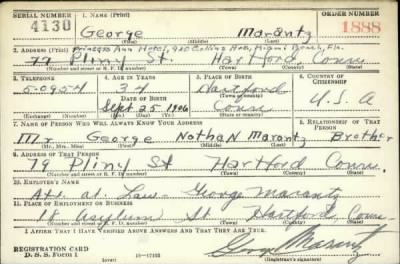 SERIAL NUMBER 1. NAME (Print) ORDER NUMBER
4130 George Marantz 1888
(First) (Middle) (Last)
2. ADDRESS (Print) Princess Ann Hotel, 920 Collins Ave, Miami Beach, Fla.
77 Pliny St. Hartford, Conn
(Number and street or R. F. D. number) (Town) (County) (State)
3. TELEPHONE 4. AGE IN YEARS 5. PLACE OF BIRTH 6. COUNTRY OF CITIZENSHIP
5-0954 34 Hartford
DATE OF BIRTH (Town or county)
Sept 25 1906 Conn U.S.A
(Exchange) (Number) (Mo.) (Day) (Yr.) (State or country)
7. NAME OF PERSON WHO WILL ALWAYS KNOW YOUR ADDRESS 8. RELATIONSHIP OF THAT PERSON
Mr George Nathan Marantz Brother
(Mr., Mrs., Miss) (First) (Middle) (Last)
9. ADDRESS OF THAT PERSON
79 Pliny St Hartford Conn.
(Number and street or R. F. D. number) (Town) (County) (State)
10. EMPLOYER'S NAME
Att. at Law - George Marantz
11. PLACE OF EMPLOYMENT OR BUSINESS
18 Asylum St Hartford, Conn
(Number and street or R. F. D. number) (Town) (County) (State)
I AFFIRM THAT I HAVE VERIFIED ABOVE ANSWERS AND THAT THEY ARE TRUE.
REGISTRATION CARD George Marantz
D. S. S. Form 1 (over) 16-17105 (Registrant's signature)